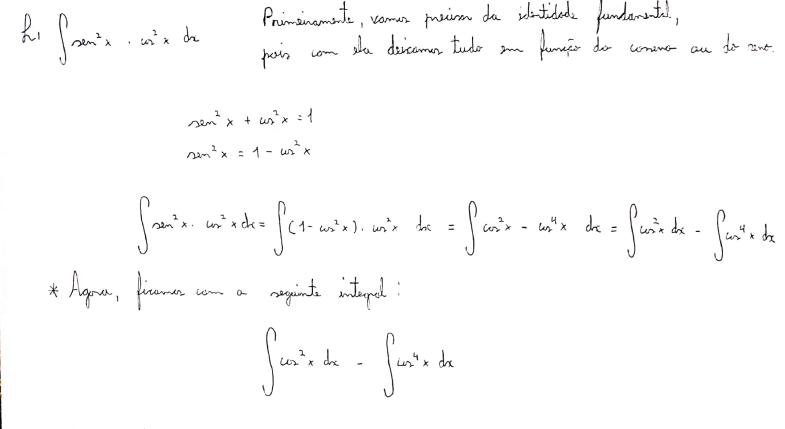 h) ∫ sen² x . cos² x dx
Primeiramente, vamos precisar da identidade fundamental,
pois com ela deixamos tudo em função do cosseno ou do seno.
sen² x + cos² x = 1
sen² x = 1 - cos² x
∫ sen² x . cos² x dx = ∫ (1 - cos² x) . cos² x dx = ∫ cos² x - cos⁴ x dx = ∫ cos² x dx - ∫ cos⁴ x dx
* Agora, ficamos com a seguinte integral :
∫ cos² x dx - ∫ cos⁴ x dx